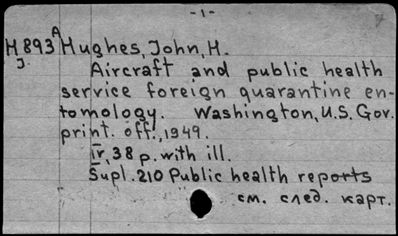 -1-
H893 A Hughes, John, H.
J.
Aircraft and public health
service foreign quarantine en-
tomology. Washington, U.S. Gov.
print. off., 1949.
IV, 38 p. with ill.
Supl. 210 Public health reports
см. след. карт.